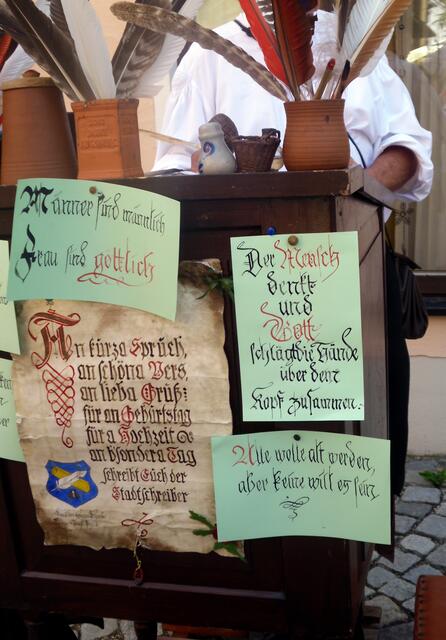 Männer sind männlich
Frau sind göttlich
An kürza Sprüch,
an schöna Vers
an lieba Grüß
für an Gebürtstag
für a Hochzeit &
an bsondera Tag
schreibt Eüch der
Stadtschreiber
Der Mensch
denkt
und
Gott
schlägt die Hände
über dem
Kopf zusammen.
Alle wolle alt werden,
aber keine will es sein